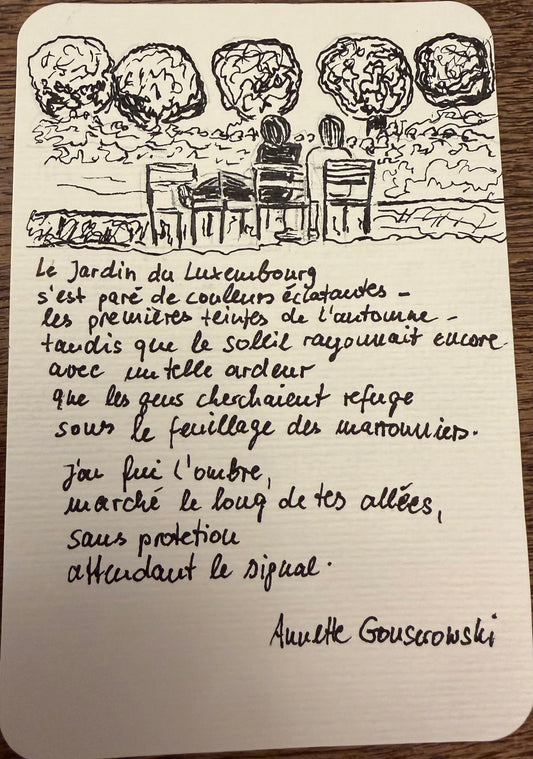 Le Jardin du Luxembourg
s'est paré de couleurs éclatantes –
les premières teintes de l'automne –
tandis que le soleil rayonnait encore
avec un telle ardeur
que les gens cherchaient refuge
sous le feuillage des marronniers.
j'ai fui l'ombre,
marché le long de tes allées,
sans protetion
attendant le signal.
Annette Gonserowski